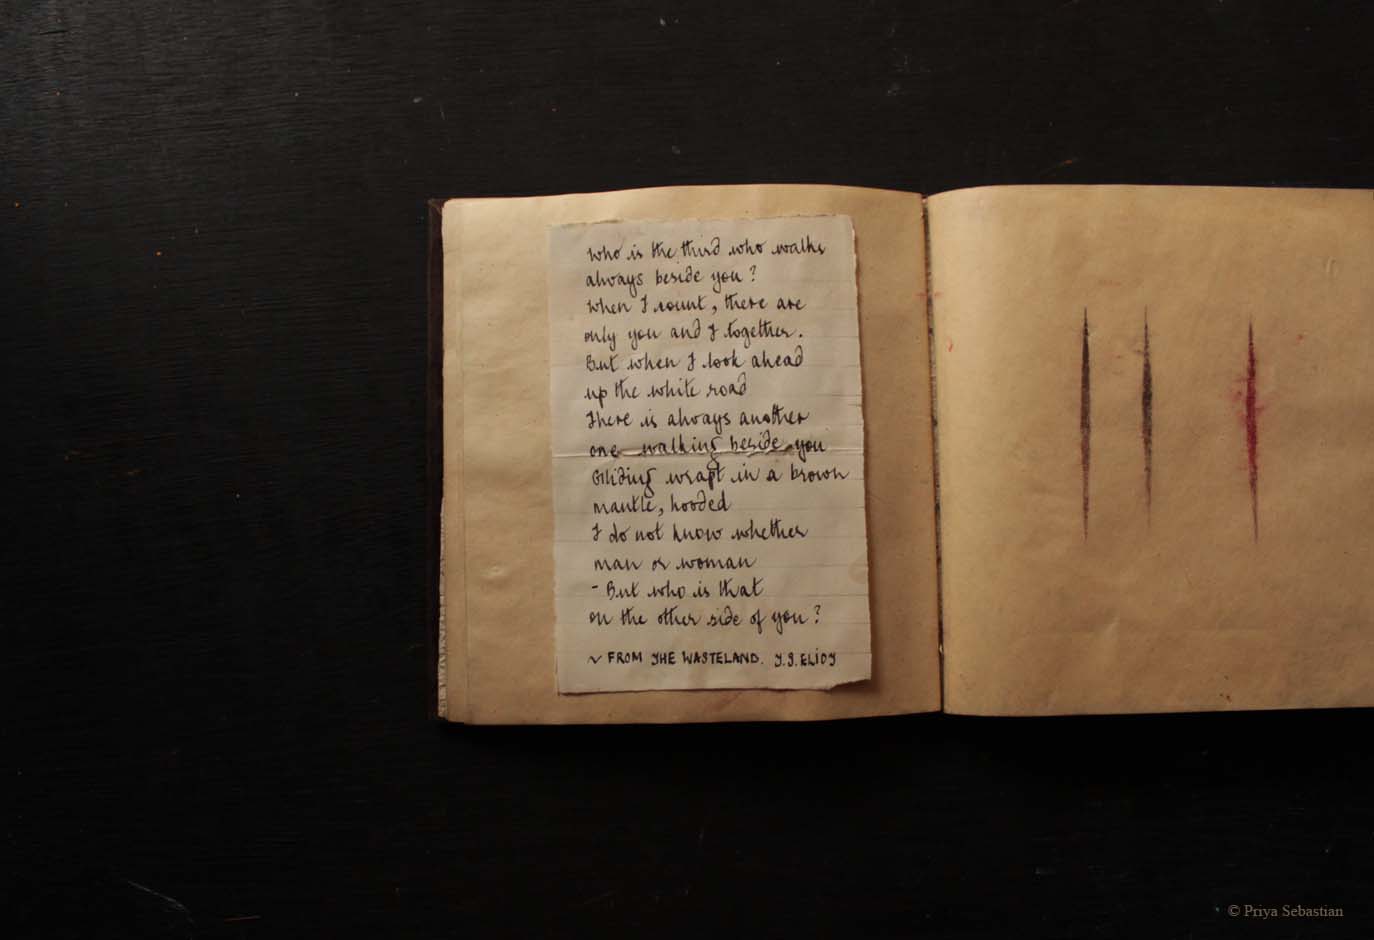 Who is the third who walks
always beside you?
When I count, there are
only you and I together.
But when I look ahead
up the white road
There is always another
one walking beside you
Gliding wrapt in a brown
mantle, hooded
I do not know whether
man or woman
- But who is that
on the other side of you?
~ FROM THE WASTELAND. T.S. ELIOT
© Priya Sebastian